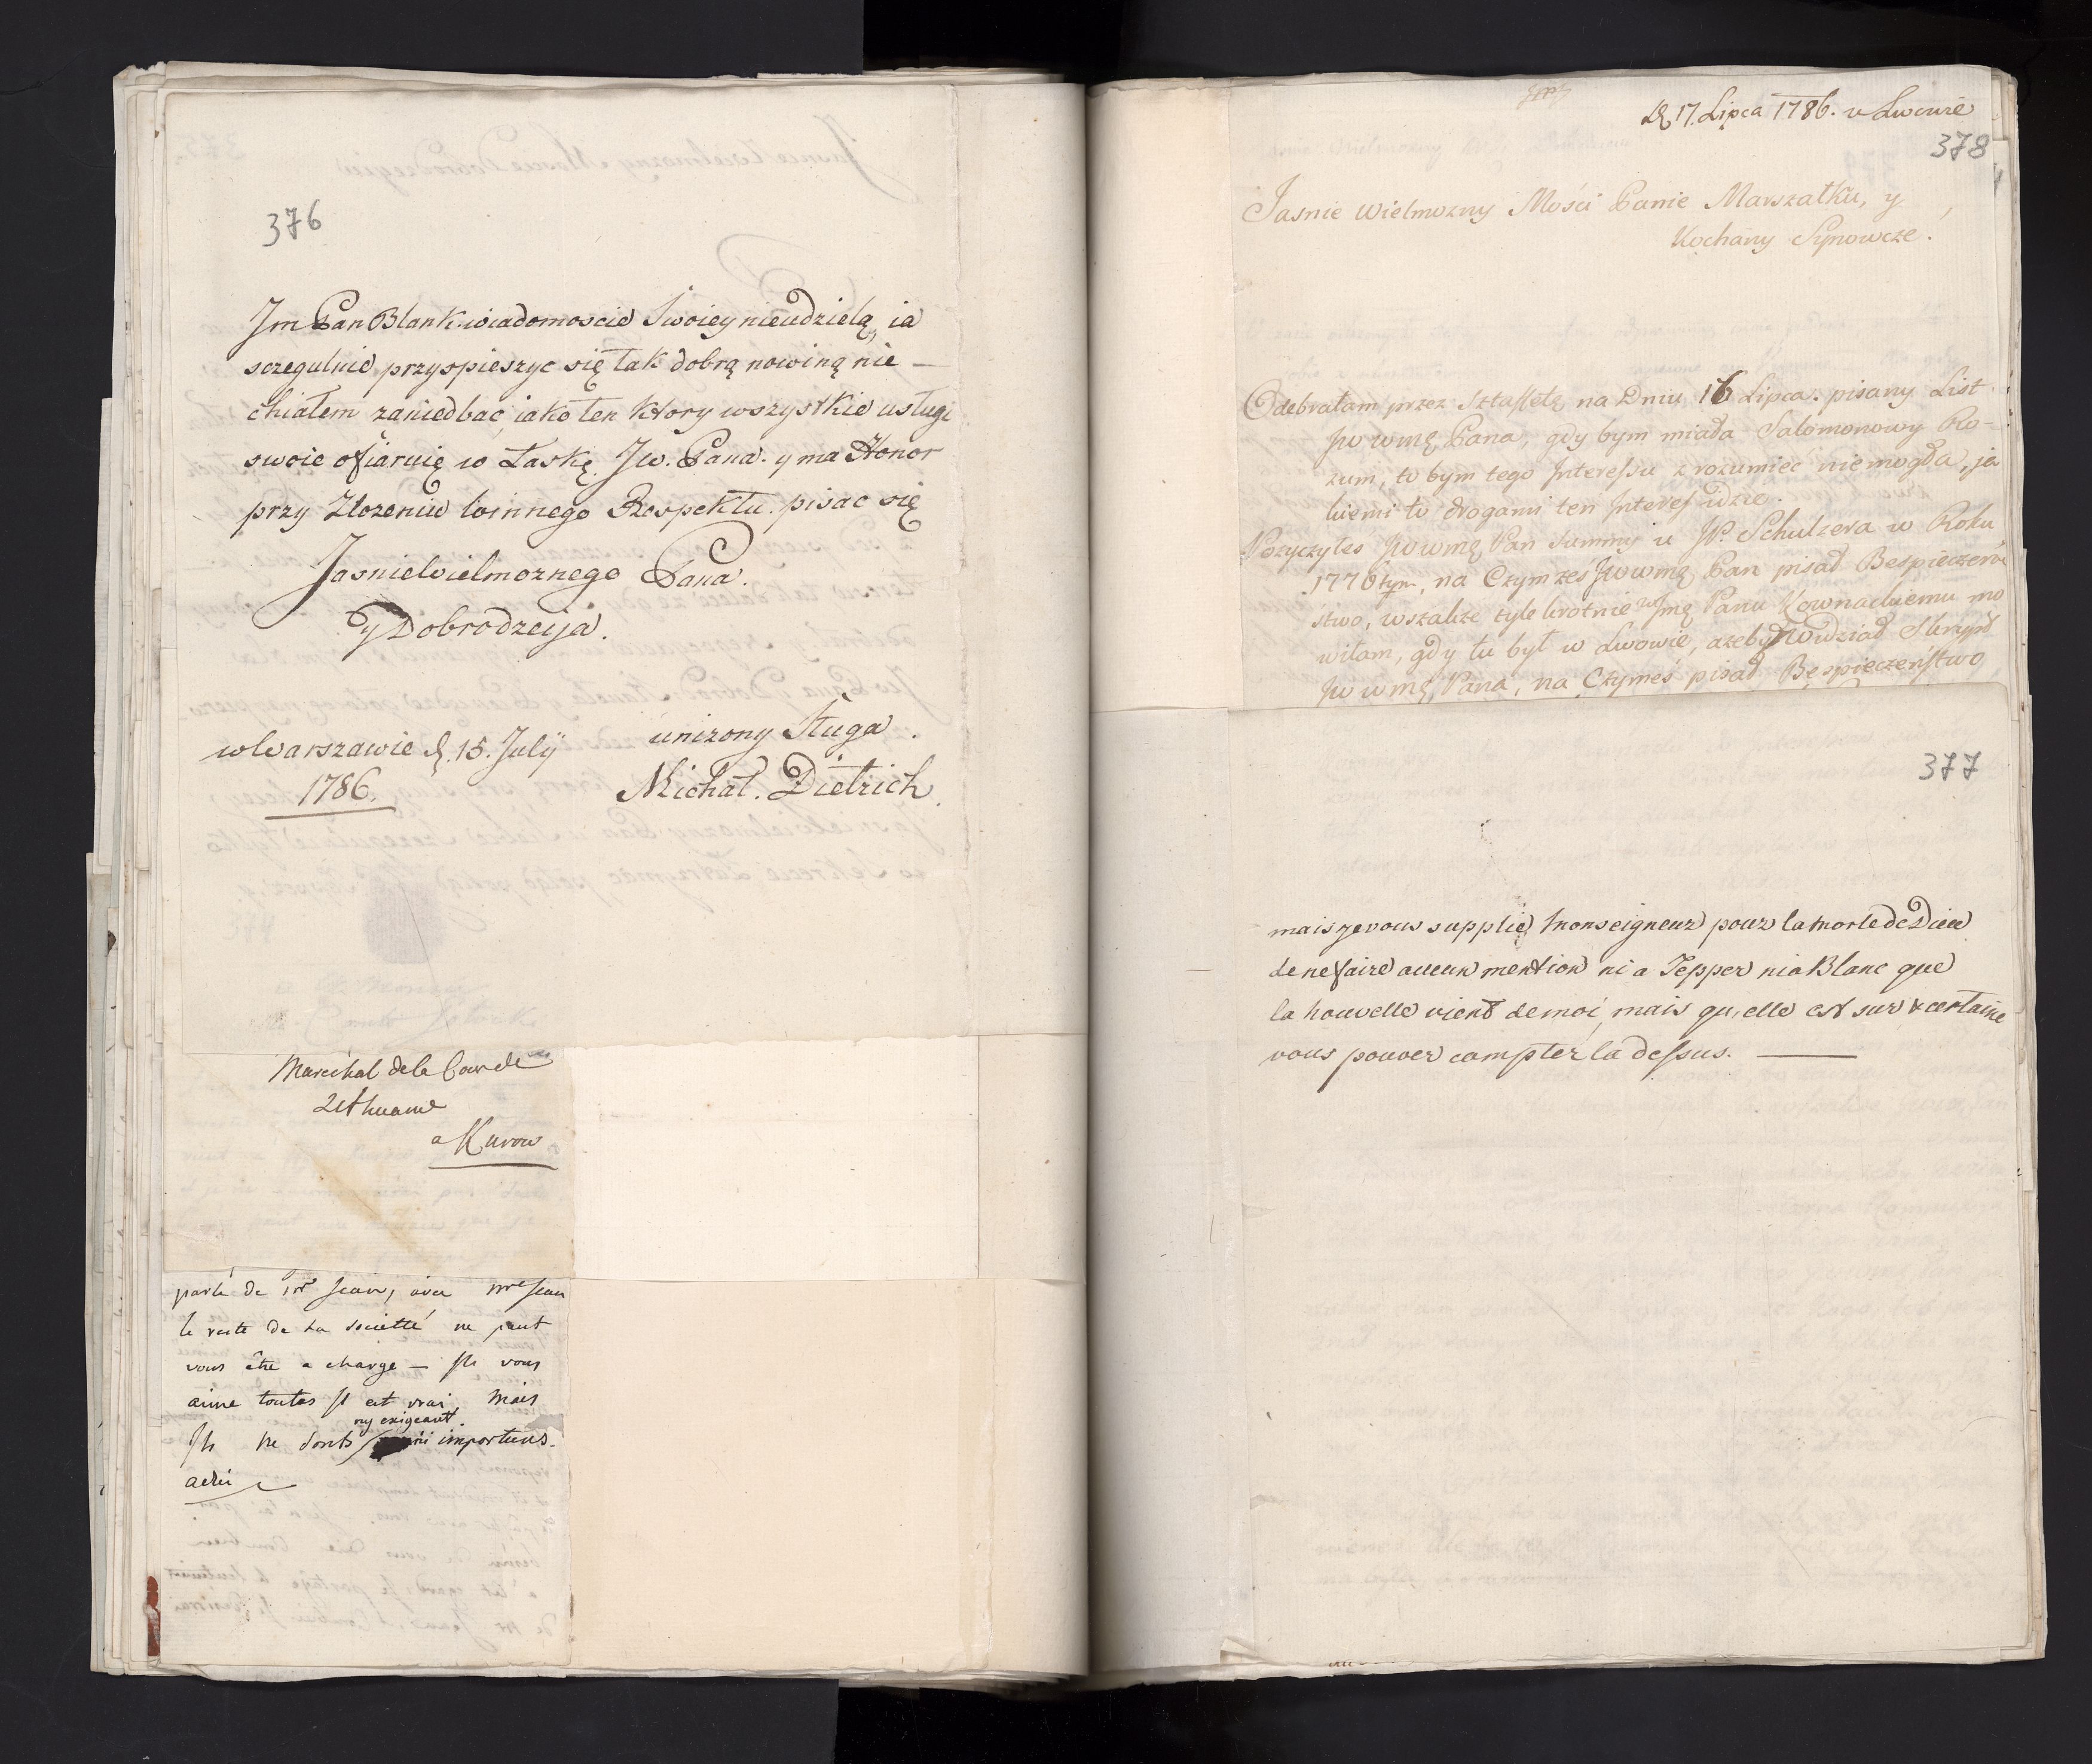 376
Jm Pan Blank wiadomoscie Swoiey nieudzielą, ia
sczegulnie przyspieszyc się tak dobrą nowiną nie —
chiałem zaniedbac, iako ten ktory wszystkie usługi
swoie ofiaruię w Łaskę Jw. Pana. y ma Honor
przy Złozeniu winnego Respektu. pisac się
Jasnie Wielmoznego Pana.
y Dobrodzeija.
w Warszawie d. 15. Julij
1786.
unizony Sługa.
Michał. Dietrich.
Marechal de la Cour de
Lithuanie
a Kurow
parlé de Mr Jean, avec Mme Jean
le reste de la societté ne peut
vous être a charge — Ils vous
aime toutes Il est vrai, Mais
ny exigeant.
Ils ne sonts ni importuns.
adié
D. 17. Lipca 1786. w Lwowie
378
Jasnie Wielmozny Mości Panie Marszałku, y
Kochany Synowcze.
Odebrałam przez Sztaffetę na Dniu 16 Lipca. pisany List
Jw wmę Pana, gdy bym miała Salomonowy Ro-
zum, to bym tego Interessu zrozumieć niemogła, ja
kiemi to drogami ten Interes idzie.
Pozyczyłes Jw wmę Pan Summy u JP. Schultzera w Roku
1776 tym, na Czymześ Jw wmę Pan pisał Bespieczeń
stwo, wszakże tyle krotnie Jmę Panu Kownackiemu mo
wiłam, gdy tu był w Lwowie, azeby Widział Skrypt
Jw wmę Pana, na Czymeś pisał Bespieczeństwo
377
mais je vous supplie, Monseigneur pour la morte de Dieu
de ne faire aucun mention ni a Tepper ni a Blanc que
la nouvelle vient de moi, mais qu'elle est sur & certaine
vous pouver compter la dessus. —